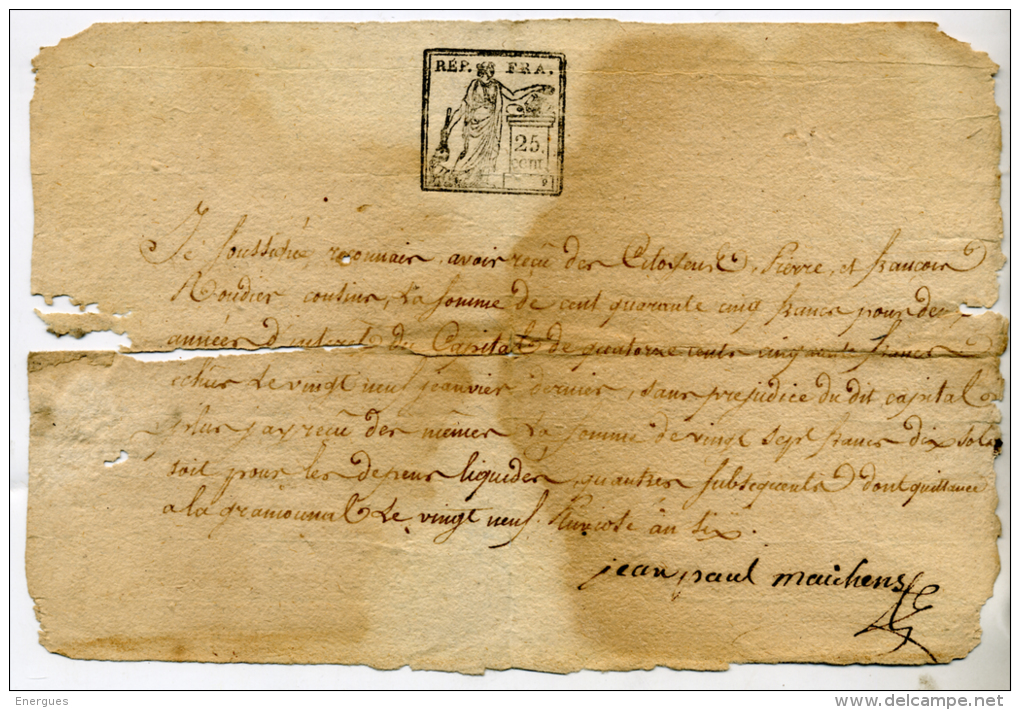 RÉP. FRA.
25.
cent.
Je soussigné reconnais avoir reçu des Citoyens Pierre, et francois
Roudier cousins, La somme de cent quarante cinq francs pour deux
années d'interet du Capital de quatorze cents cinquante francs
echus Le vingt neuf jeanvier dernier, sans prejudice du dit capital
plus jay reçu des mêmes La somme de vingt sept francs dix sols
soit pour les depens liquides, qu'autres subsequents dont quittance
a la gramounal Le vingt neuf Nivose an six.
jean paul maichens
Energues
www.delcampe.net